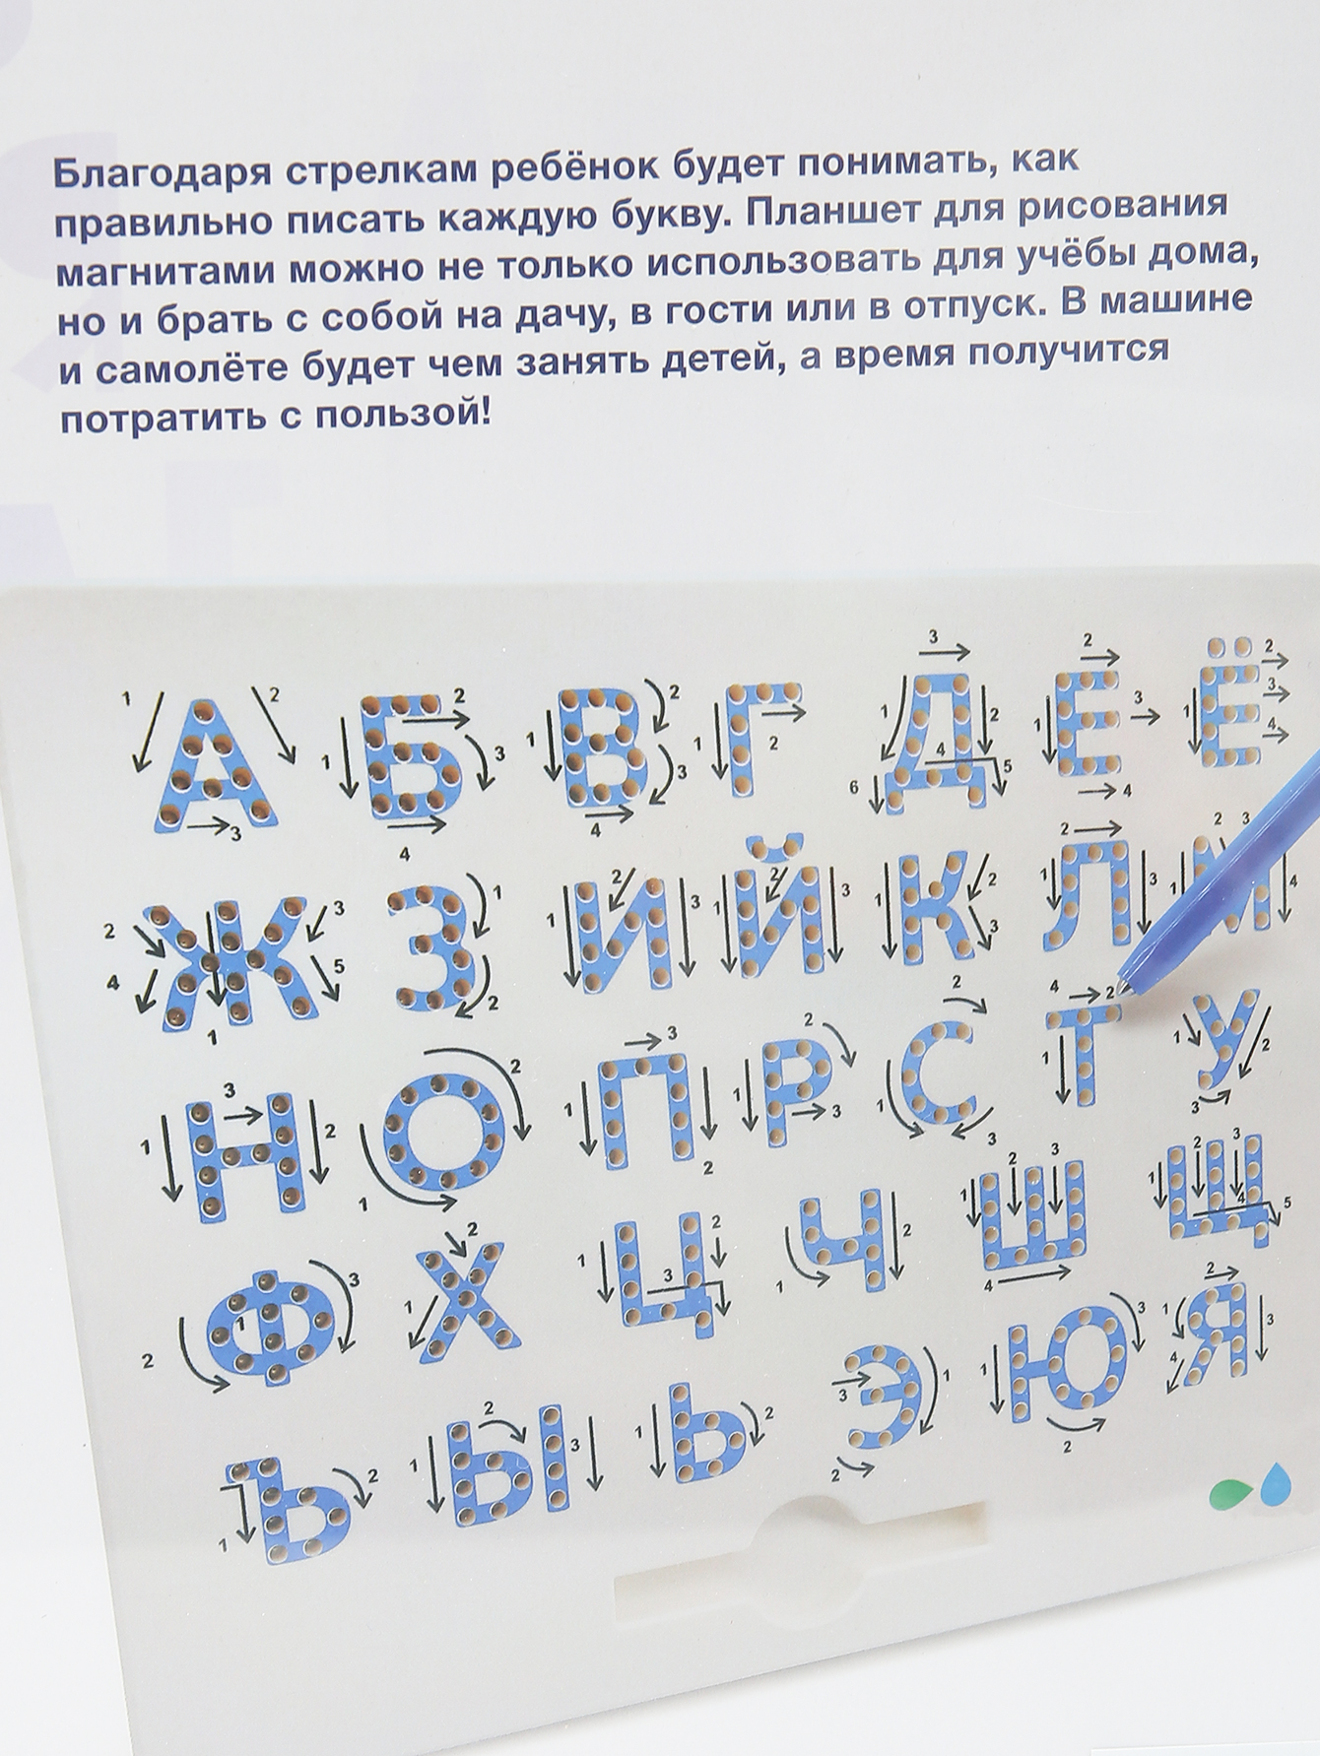 Благодаря стрелкам ребёнок будет понимать, как
правильно писать каждую букву. Планшет для рисования
магнитами можно не только использовать для учёбы дома,
но и брать с собой на дачу, в гости или в отпуск. В машине
и самолёте будет чем занять детей, а время получится
потратить с пользой!
А Б В Г Д Е Ё
Ж З И Й К Л М
Н О П Р С Т У
Ф Х Ц Ч Ш Щ
Ъ Ы Ь Э Ю Я